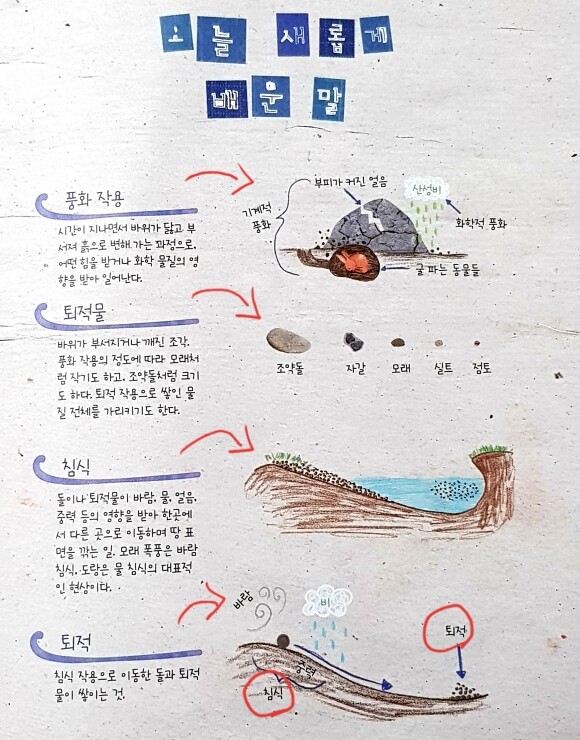 오늘 새롭게
배운 말
풍화 작용
시간이 지나면서 바위가 닳고 부
서져 흙으로 변해 가는 과정으로,
어떤 힘을 받거나 화학 물질의 영
향을 받아 일어난다.
기계적
풍화
부피가 커진 얼음
산성비
화학적 풍화
굴 파는 동물들
퇴적물
바위가 부서지거나 깨진 조각.
풍화 작용의 정도에 따라 모래처
럼 작기도 하고, 조약돌처럼 크기
도 하다. 퇴적 작용으로 쌓인 물
질 전체를 가리키기도 한다.
조약돌
자갈
모래
실트
점토
침식
돌이나 퇴적물이 바람, 물, 얼음,
중력 등의 영향을 받아 한곳에
서 다른 곳으로 이동하며 땅 표
면을 깎는 일. 모래 폭풍은 바람
침식, 도랑은 물 침식의 대표적
인 현상이다.
퇴적
침식 작용으로 이동한 돌과 퇴적
물이 쌓이는 것.
바람
비
중력
침식
퇴적